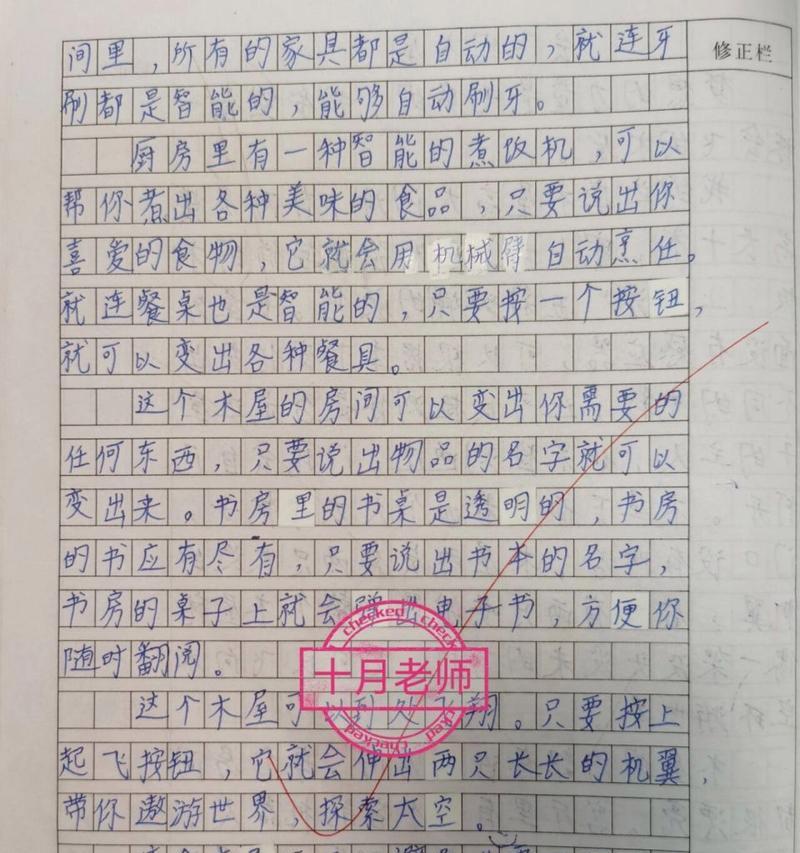 间里，所有的家具都是自动的，就连牙
修正栏
刷都是智能的，能够自动刷牙。
厨房里有一种智能的煮饭机，可以
帮你煮出各种美味的食品，只要说出你
喜爱的食物，它就会用机械臂自动烹任。
就连餐桌也是智能的，只要按一个按钮，
就可以变出各种餐具。
这个木屋的房间可以变出你需要的
任何东西，只要说出物品的名字就可以
变出来。书房里的书桌是透明的，书房
的书应有尽有，只要说出书本的名字，
书房的桌子上就会蹭出电子书，方便你
随时翻阅。
checked check
十月老师
checked
这个木屋可以到处飞翔。只要按上
起飞按钮，它就会伸出两只长长的机翼，
带你遨游世界，探索太空。